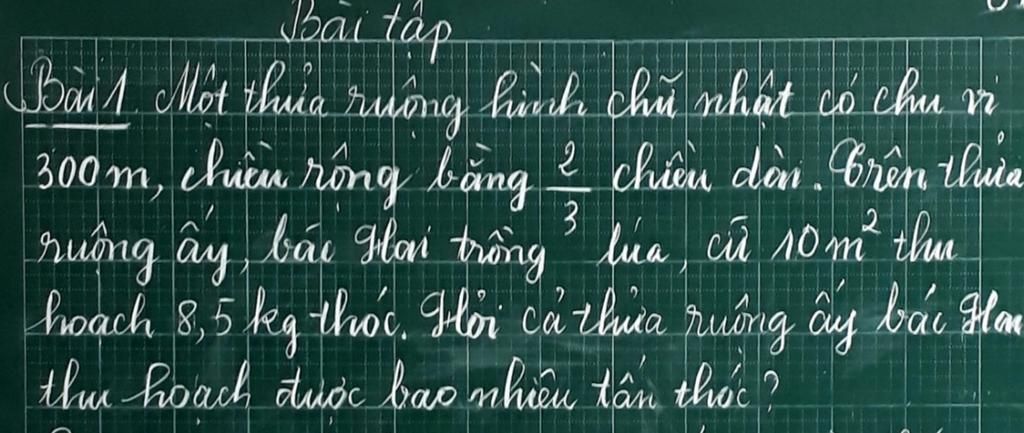 Bài tập
Bài 1 Một thửa ruộng hình chữ nhật có chu vi
300m, chiều rộng bằng 2/3 chiều dài. Trên thửa
ruộng ấy, bác Hai trồng lúa, cứ 10m² thu
hoạch 8,5 kg thóc. Hỏi cả thửa ruộng ấy bác Hai
thu hoạch được bao nhiêu tấn thóc?